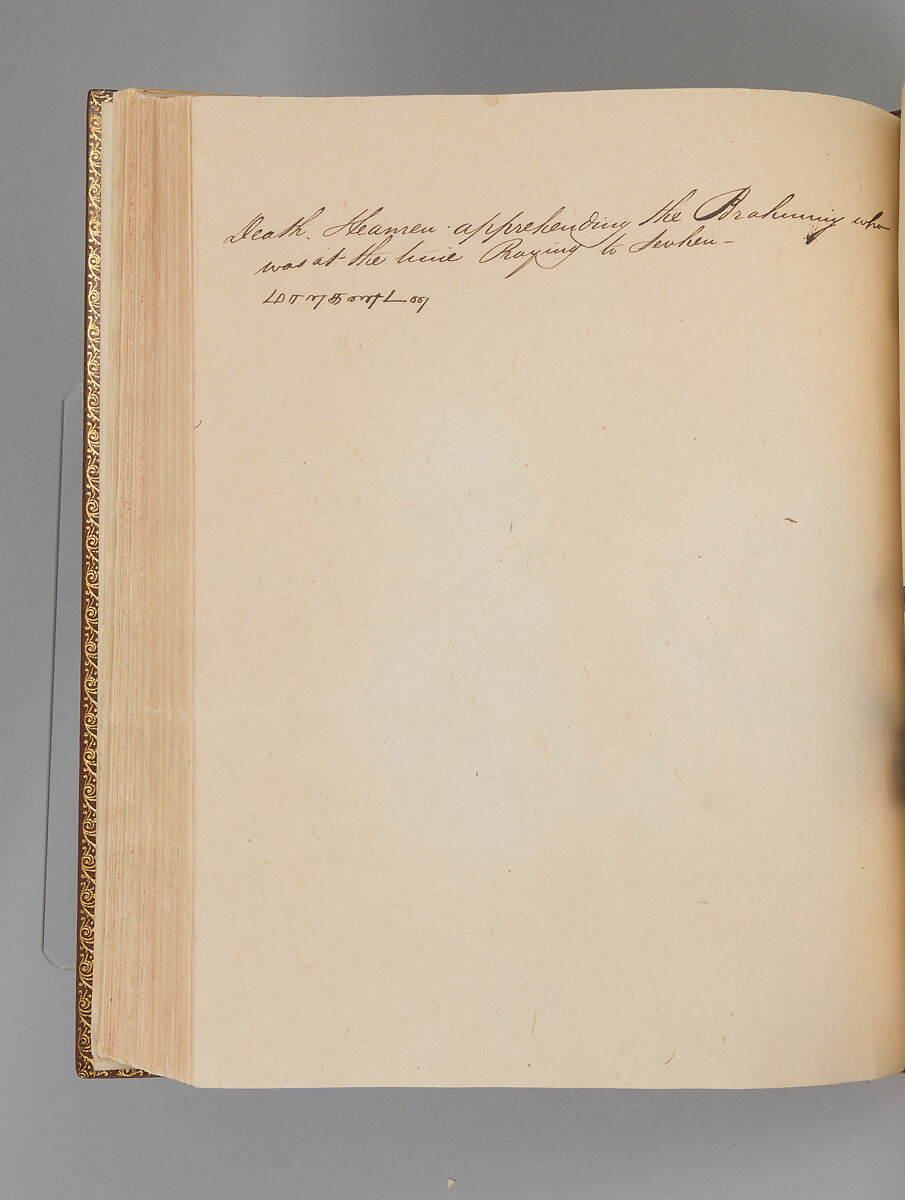 Death. Heamen apprehending the Brahminy who
was at the time Praying to Sevhen –
மார்கண்டன